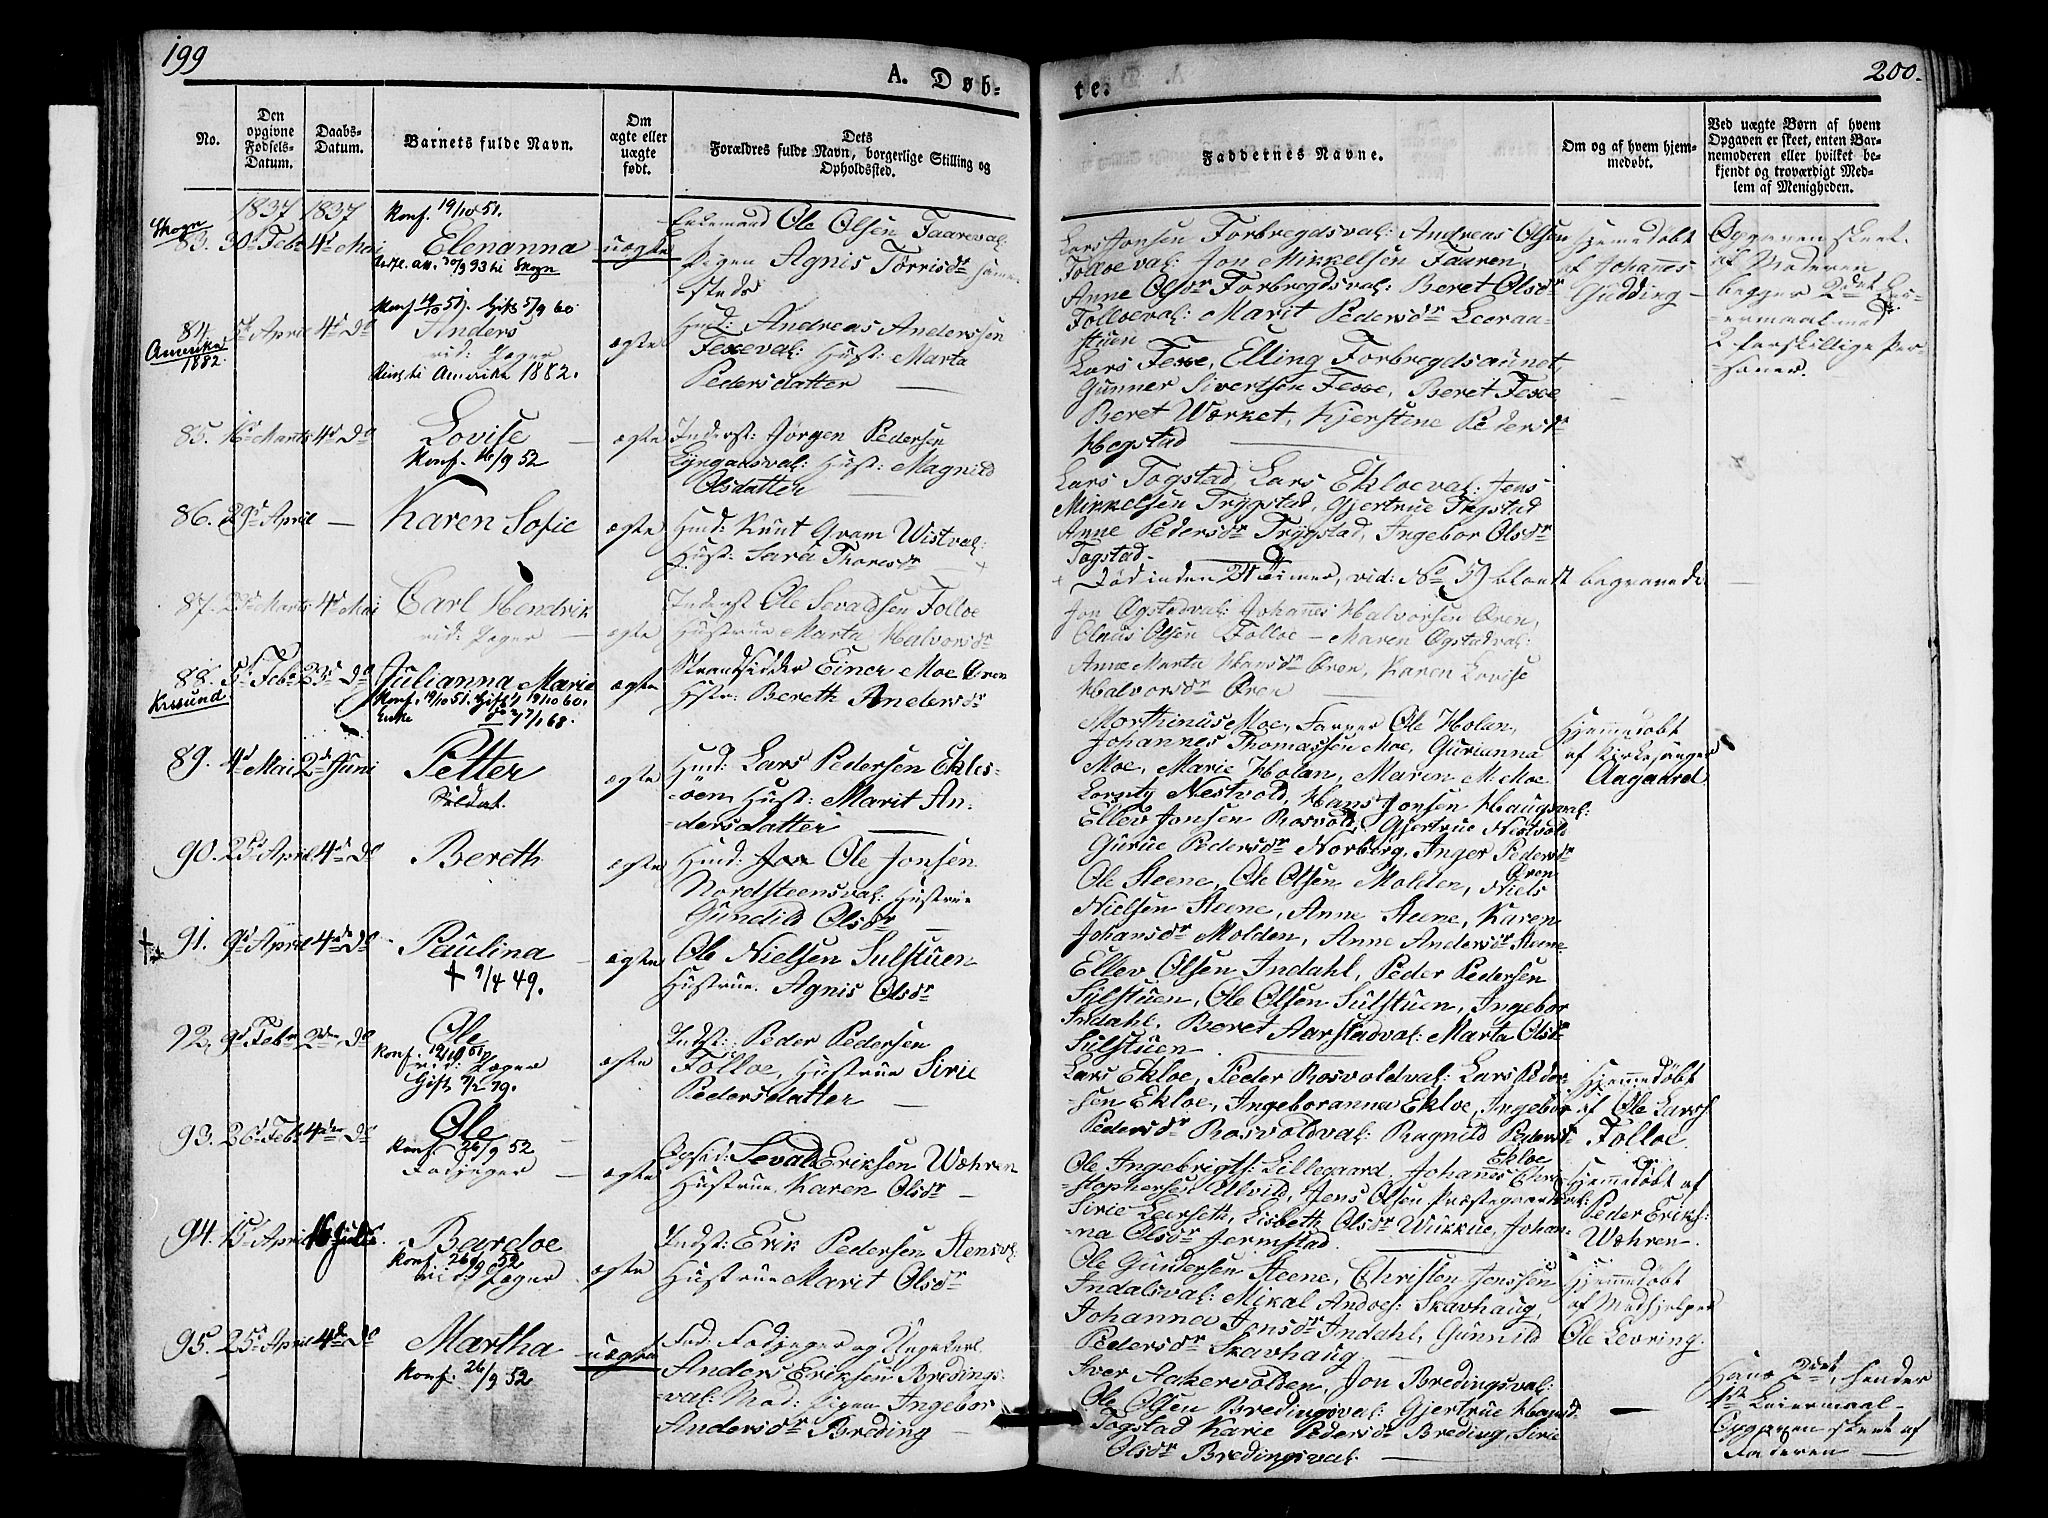 199
A. Døb=
te.
200.
No.
Den opgivne Fødsels-Datum.
Daabs-Datum.
Barnets fulde Navn.
Om ægte eller uægte født.
Dets Forældres fulde Navn, borgerlige Stilling og Opholdssted.
Faddernes Navne.
Om og af hvem hjemmedøbt.
Ved uægte Børn af hvem Opgaven er skeet, enten Barnemoderen eller hvilket bekjendt og troværdigt Medlem af Menigheden.
1837 1837
Konf. 19/10 51.
Skogn
83. 4de Mai
Elenanna
uægte
Enkemand Ole Olsen Faareval:
Pigen Agnis Torrisdr samme-
steds
Lars Jonsen Forbregdsval: Andreas Olsen
Folloeval: Jon Mikkelsen Fauren,
Anne Olsdr Forbregdsval: Beret Olsdr
Folloeval: Marit Pedersdr Leeraa-
stuen
Hjemedøbt
af Johannes
Gudding
Opgaven skeet
af Moderen
begges 2det Lei-
ermaal med
2 forskillige Per-
soner.
Konf 19/10 51. Gift 5/9 60
84. 5te April 4de Do
Amerika
1882.
Anders
Reist til Amerika 1882.
ægte
Hmd: Andreas Anderssen
Fesseval: Hust: Marta
Pedersdatter
Lars Fesse, Elling Forbregdsaunet,
Gunner Sivertsen Fesse, Beret Fesse
Beret Værket, Kjerstine Pedersdr
Hegstad
85. 16de Marts 4de Do
Lovise
Konf. 16/9 52
ægte
Inderst: Jørgen Pedersen
Lyngaasval: Hust: Magnild
Olsdatter
Lars Togstad, Lars Ekloeval: Jens
Mikkelsen Trygstad, Gjertrue Trygstad
Anne Pedersdr Trygstad, Ingebor Olsdr
Togstad.
86. 29de April
Karen Sofie
ægte
Hmd: Knut Gram Wistval:
Hust: Sara Thoresdr
Død inden 24 Timer, vid: No 59 blandt begravede
87. Marts 4de Mai
Carl Hendrik
ægte
Inderst Ole Sevaldsen Folloe
Hustrue Marta Halvorsdr
Jon Øgstadval: Johannes Halvorsen Ören,
Olaus Olsen Folloe - Maren Øgstadval:
Anne Marta Hansdr Ören, Karen Lovise
Halvorsdr Ören
88. 5te Febr 23de Do
Krsund
Julianna Marie
Konf. 19/10 51. Gift 1) 19/10 60.
Enke
ægte
Strandsidder Einer Moe Ören
Hstr: Bereth Andersdr
Morthinus Moe, Farver Ole Holan,
Johannes Thomassen Moe, Gurianna
Moe, Marie Holan, Maren M. Moe
Hjemmedøbt
af Kirkesanger
Aagaard
89. 4de Mai 2den Juni
Petter
Soldat.
ægte
Hmd: Lars Pedersen Ekles-
-öen, Hust: Marit An-
-dersdatter
Lornty Nestvold, Hans Jonsen Haugsval:
Ellev Jonsen Rosvold, Gjertrue Nestvold
Gurue Pedersdr Norberg, Anger Pedersdr
Ören
90. 25de April 4de Do
Bereth
ægte
Hmd: Ole Jonsen
Nordsteensval: Hustrue
Gundid Olsdr
Ole Steene, Ole Olsen Molden, Niels
Nielsen Steene, Anne Steene, Karen
Johansdr Molden, Anne Andersdr Steene
91. 9de April 4de Do
Paulina
+ 9/4 49.
ægte
Ole Nielsen Sulstuen
Hustrue Agnis Olsdr
Ellev Olsen Indahl, Peder Pedersen
Sulstuen, Ole Olsen Sulstuen, Ingebor
Indahl, Beret Aarstadval: Marta Olsdr
Sulstuen
92. 9de Febr 2den Do
Ole
Konf. 19/10 51
Gift 9/2 79.
ægte
Indst: Peder Pedersen
Folloe, Hustrue Sirie
Pedersdatter
Lars Ekloe, Peder Rosvoldval: Lars Peder-
-sen Ekloe, Ingeboranna Ekloe, Ingebor
Pedersdr Rosvoldval: Ragnild Pedersdr
Ekloe
Hjemmedøbt
af Ole Larss.
Folloe.
93. 26de Febr 4de Do
Ole
Konf. 26/9 52
ægte
Opsid: Sevald Eriksen Wæhren
Hustrue Karen Olsdr
Ole Ingebrigts: Lillegaard, Johannes Chri-
-stophersen Ulvild, Jens Olsen Præstegaardsval:
Sirie Leerseth, Lisbeth Olsdr Wukkue, Johan-
-na Olsdr Jermstad
Hjemmedøbt af
Peder Eriks:
Wæhren.
94. 15de April
Bardoe
Konf. 26/9 52
ægte
Indst: Erik Pedersen Stensval
Hustrue Marit Olsdr
Ole Gundersen Steene, Christen Jenssen
Indalsval: Mikal Andoes: Skavhaug
Johanna Jonsdr Indahl, Gunnild
Pedersdr Skavhaug
Hjemmedøbt
af Medhjelper
Ole Levring.
95. 25de April 4de Do
Martha
Konf: 26/9 52
uægte
Fad: Fodjeger og Ungekarl
Anders Eriksen Bredings-
-val: Mod: Pigen Ingebor
Andersdr Breding
Iver Aakervolden, Jon Bredingsval:
Ole Olsen Bredingsval: Gjertrue Hansdr
Togstad Karie Pedersdr Breding, Sirie
Olsdr Bredingsval.
Hans 2det, hendes
1ste Leiermaal-
Opgaven skeet af
Faderen